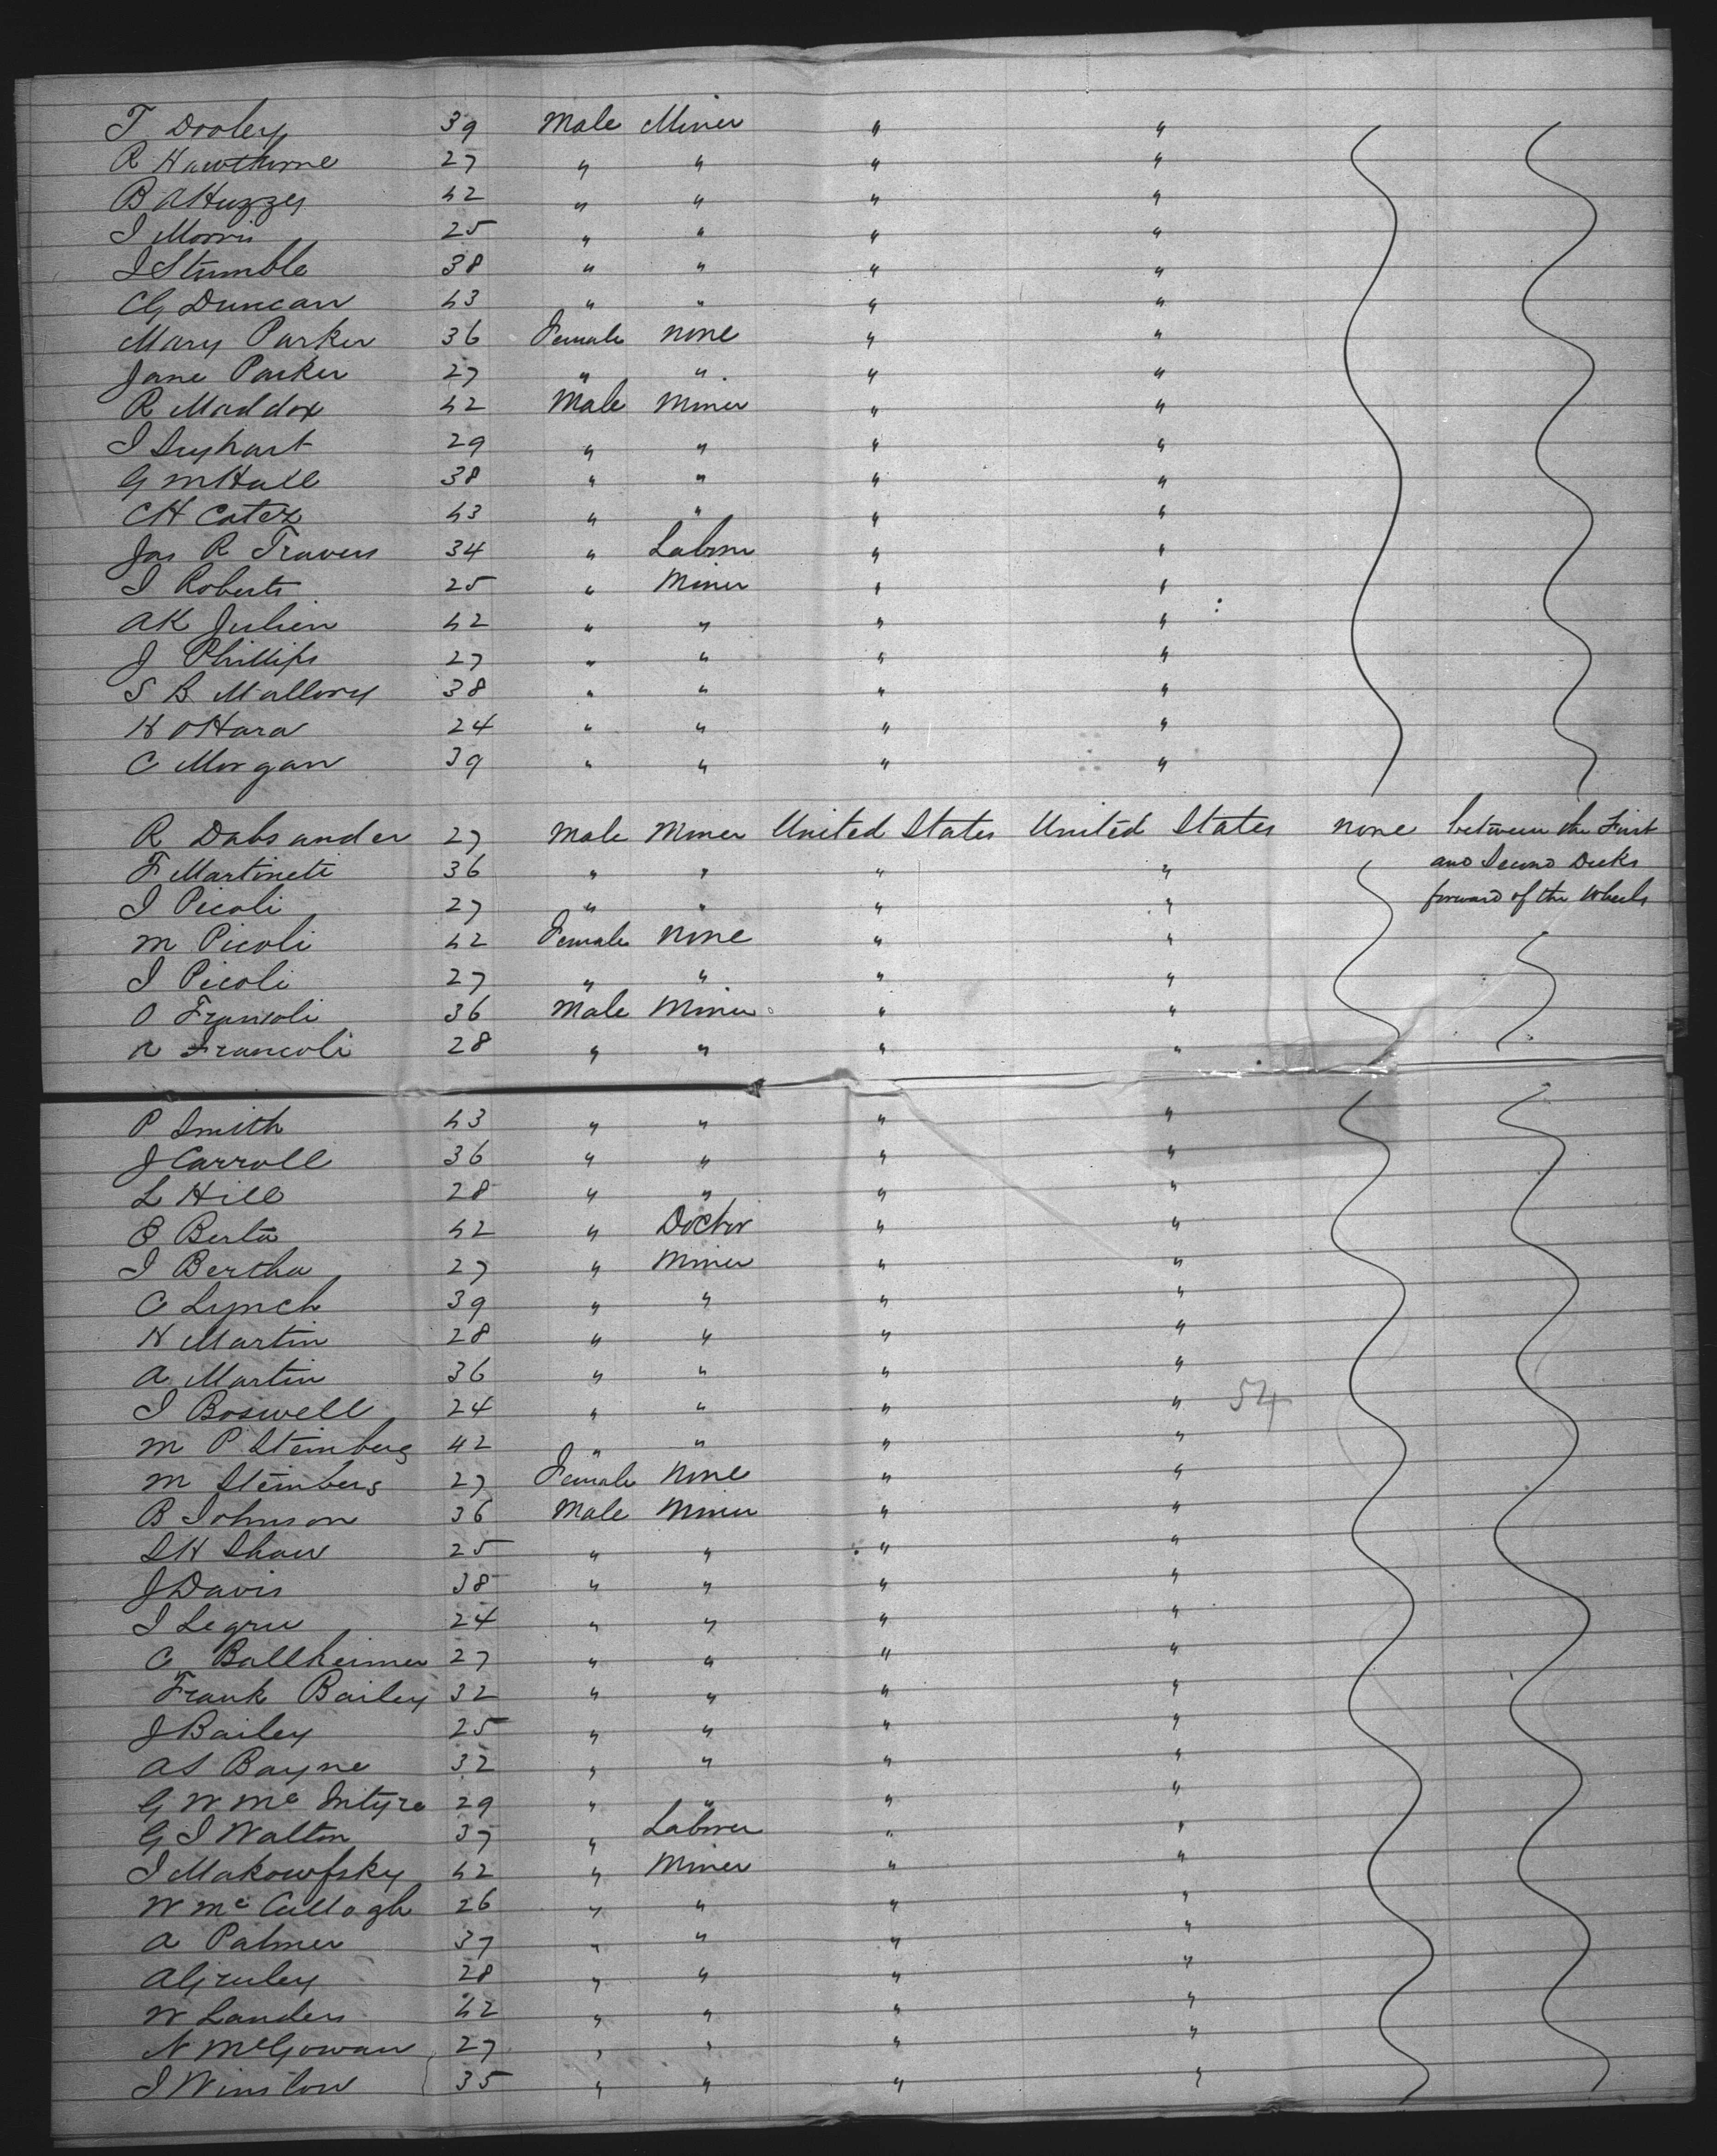 T Dooley 39 Male Miner " "
R Hawthorne 27 " " " "
B A Huzzey 42 " " " "
J Morris 25 " " " "
J Stumble 38 " " " "
C G Duncan 43 " " " "
Mary Parker 36 Female none " "
Jane Parker 27 " " " "
R Maddox 42 Male Miner " "
J 29 " " " "
G M Hall 38 " " " "
C H Catez 43 " " " "
Jas R Travers 34 " Labour " "
J Roberts 25 " Miner " "
A K Julien 42 " " " "
J Phillips 27 " " " "
S B Mallory 38 " " " "
H O'Hara 24 " " " "
C Morgan 39 " " " "
R Dabsander 27 Male Miner United States United States none between the First
F Martineti 36 " " " " and Second Decks
I Picoli 27 " " " " forward of the Wheels
M Picoli 42 Female none " "
I Picoli 27 " " " "
O Francoli 36 Male Miner " "
A Francoli 28 " " " "
P Smith 43 " " " "
J Carroll 36 " " " "
L Hill 28 " " " "
B Berta 42 " Doctor " "
I Bertha 27 " Miner " "
C Lynch 39 " " " "
H Martin 28 " " " "
A Martin 36 " " " "
I Boswell 24 " " " " 54
M P Steinberg 42 " " " "
M Steinberg 27 Female None " "
B Johnson 36 Male Miner " "
S H Shaw 25 " " " "
J Davis 38 " " " "
I Legru 24 " " " "
C Ballheimer 27 " " " "
Frank Bailey 32 " " " "
J Bailey 25 " " " "
A S Bayne 32 " " " "
G W Mc Intyre 29 " " " "
G I Walton 37 " Laborer " "
I Makowfsky 42 " Miner " "
W Mc Cullogh 26 " " " "
A Palmer 37 " " " "
A Gruley 28 " " " "
W Landers 42 " " " "
N McGowan 27 " " " "
I Winslow 35 " " " "